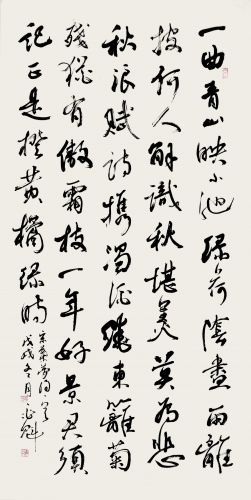 一曲青山映小池绿荷陰盡雨離
披何人解識秋堪美莫為悲
秋浪賦詩携濁酒繞東籬菊
殘猶有傲霜枝一年好景君須
記正是橙黄橘绿時
宋葉夢得词
戊戌冬月